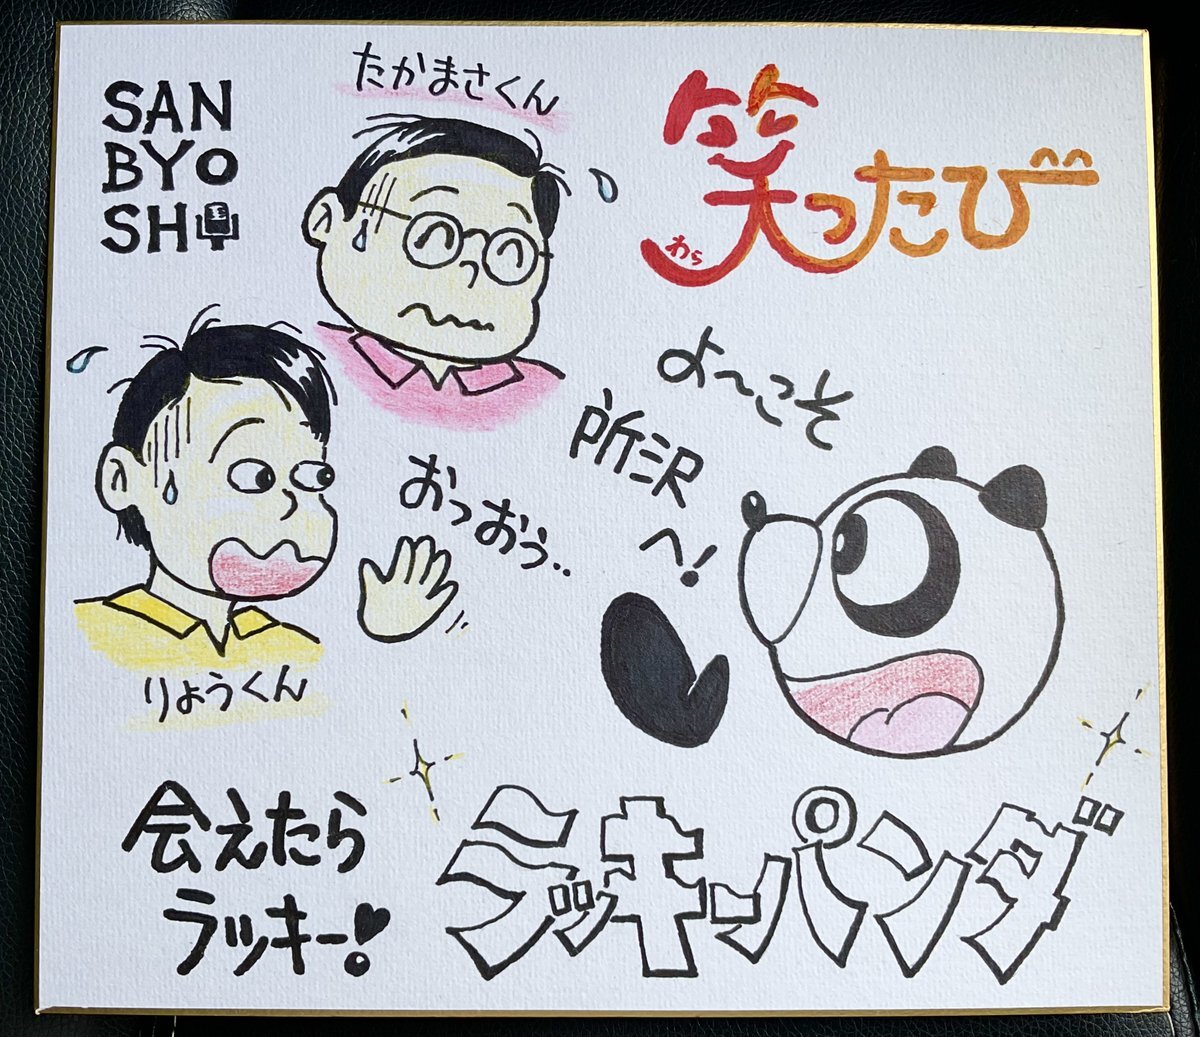 SAN
BYO
SHI
たかまさくん
笑ったび
わら
よ〜こそ
所沢
へ!
おっおぅ‥
りょうくん
会えたら
ラッキー!
ラッキーパンダ